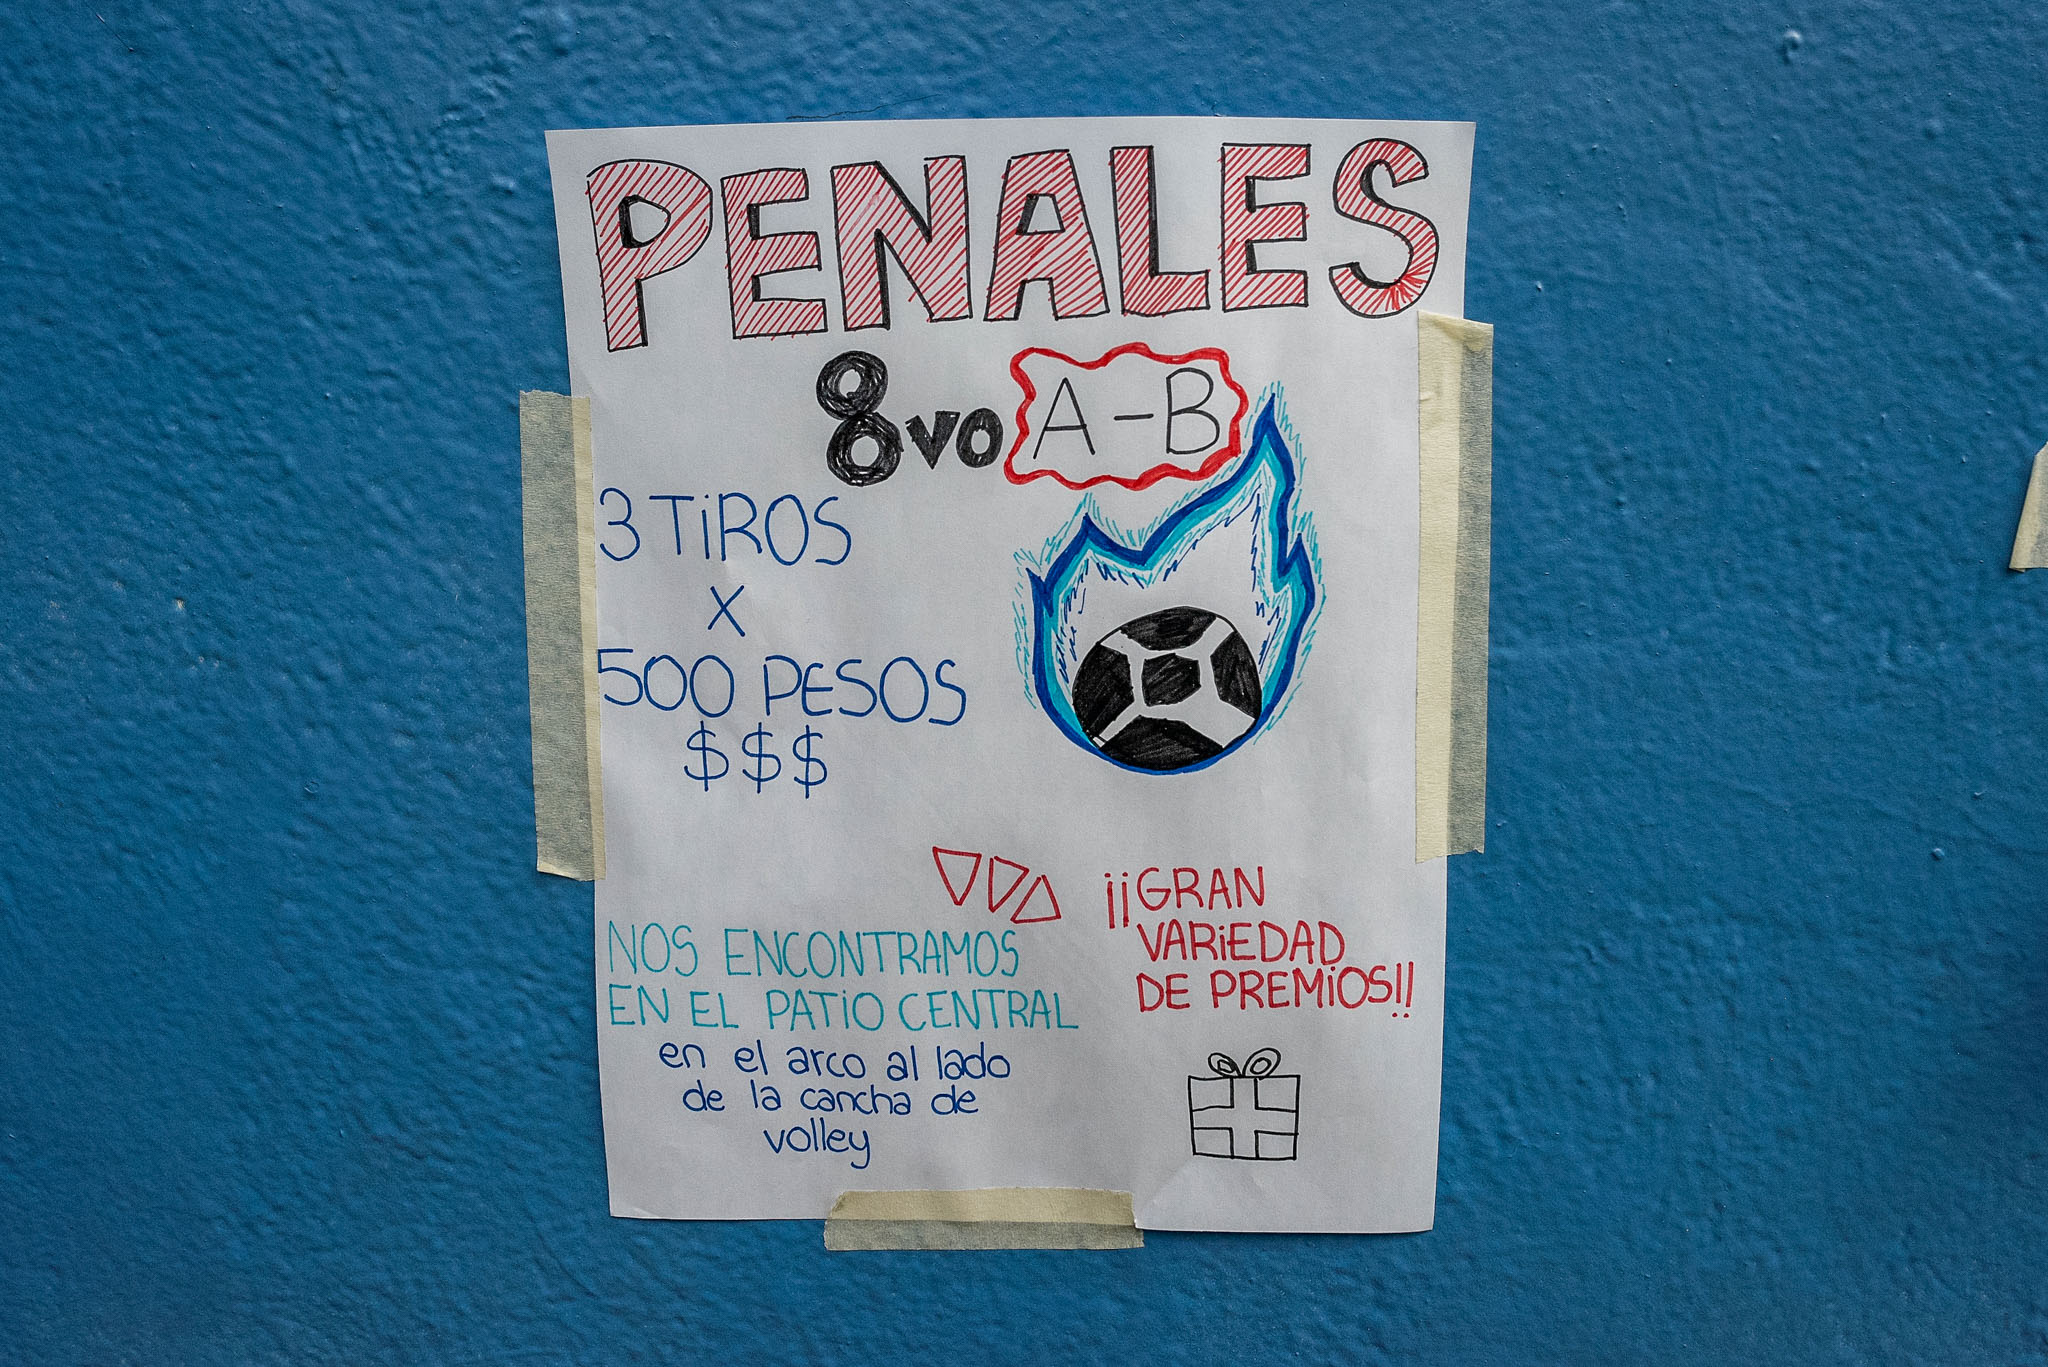 PENALES
8vo A-B
3 TiROS
X
500 PESOS
$$$
NOS ENCONTRAMOS
EN EL PATiO CENTRAL
en el arco al lado
de la cancha de
volley
¡¡GRAN
VARiEDAD
DE PREMiOS!!